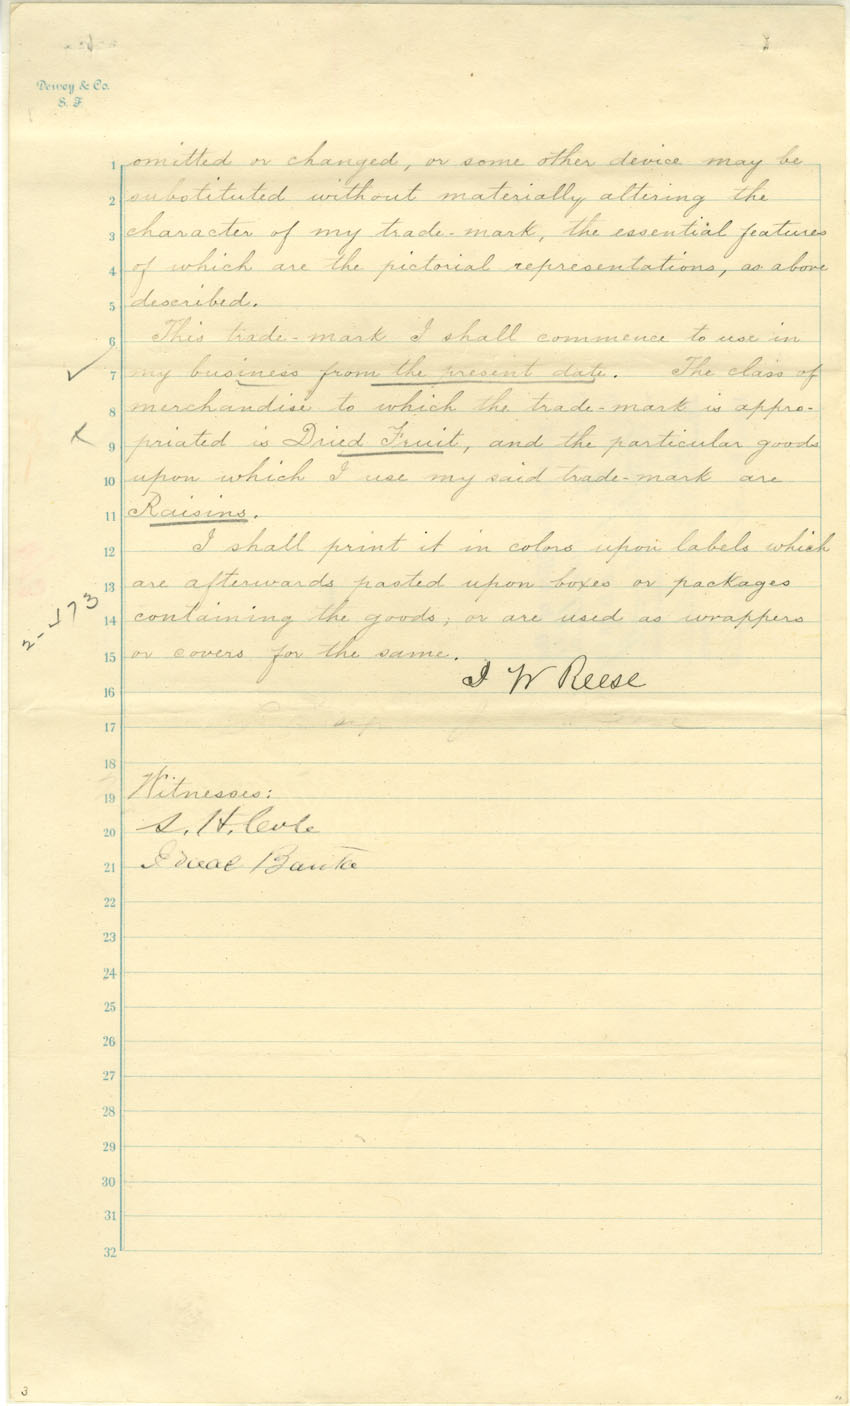 Dewey & Co.
S. F.
1 omitted or changed, or some other device may be
2 substituted without materially altering the
3 character of my trade-mark, the essential features
4 of which are the pictorial representations, as above
5 described.
6 This trade-mark I shall commence to use in
7 my business from the present date. The class of
8 merchandise to which the trade-mark is appro-
9 priated is Dried Fruit, and the particular goods
10 upon which I use my said trade-mark are
11 Raisins.
12 I shall print it in colors upon labels which
13 are afterwards pasted upon boxes or packages
14 containing the goods, or are used as wrappers
15 or covers for the same.
16 I W Reese
17
18
19 Witnesses:
20 S. H.
21
22
23
24
25
26
27
28
29
30
31
32
3